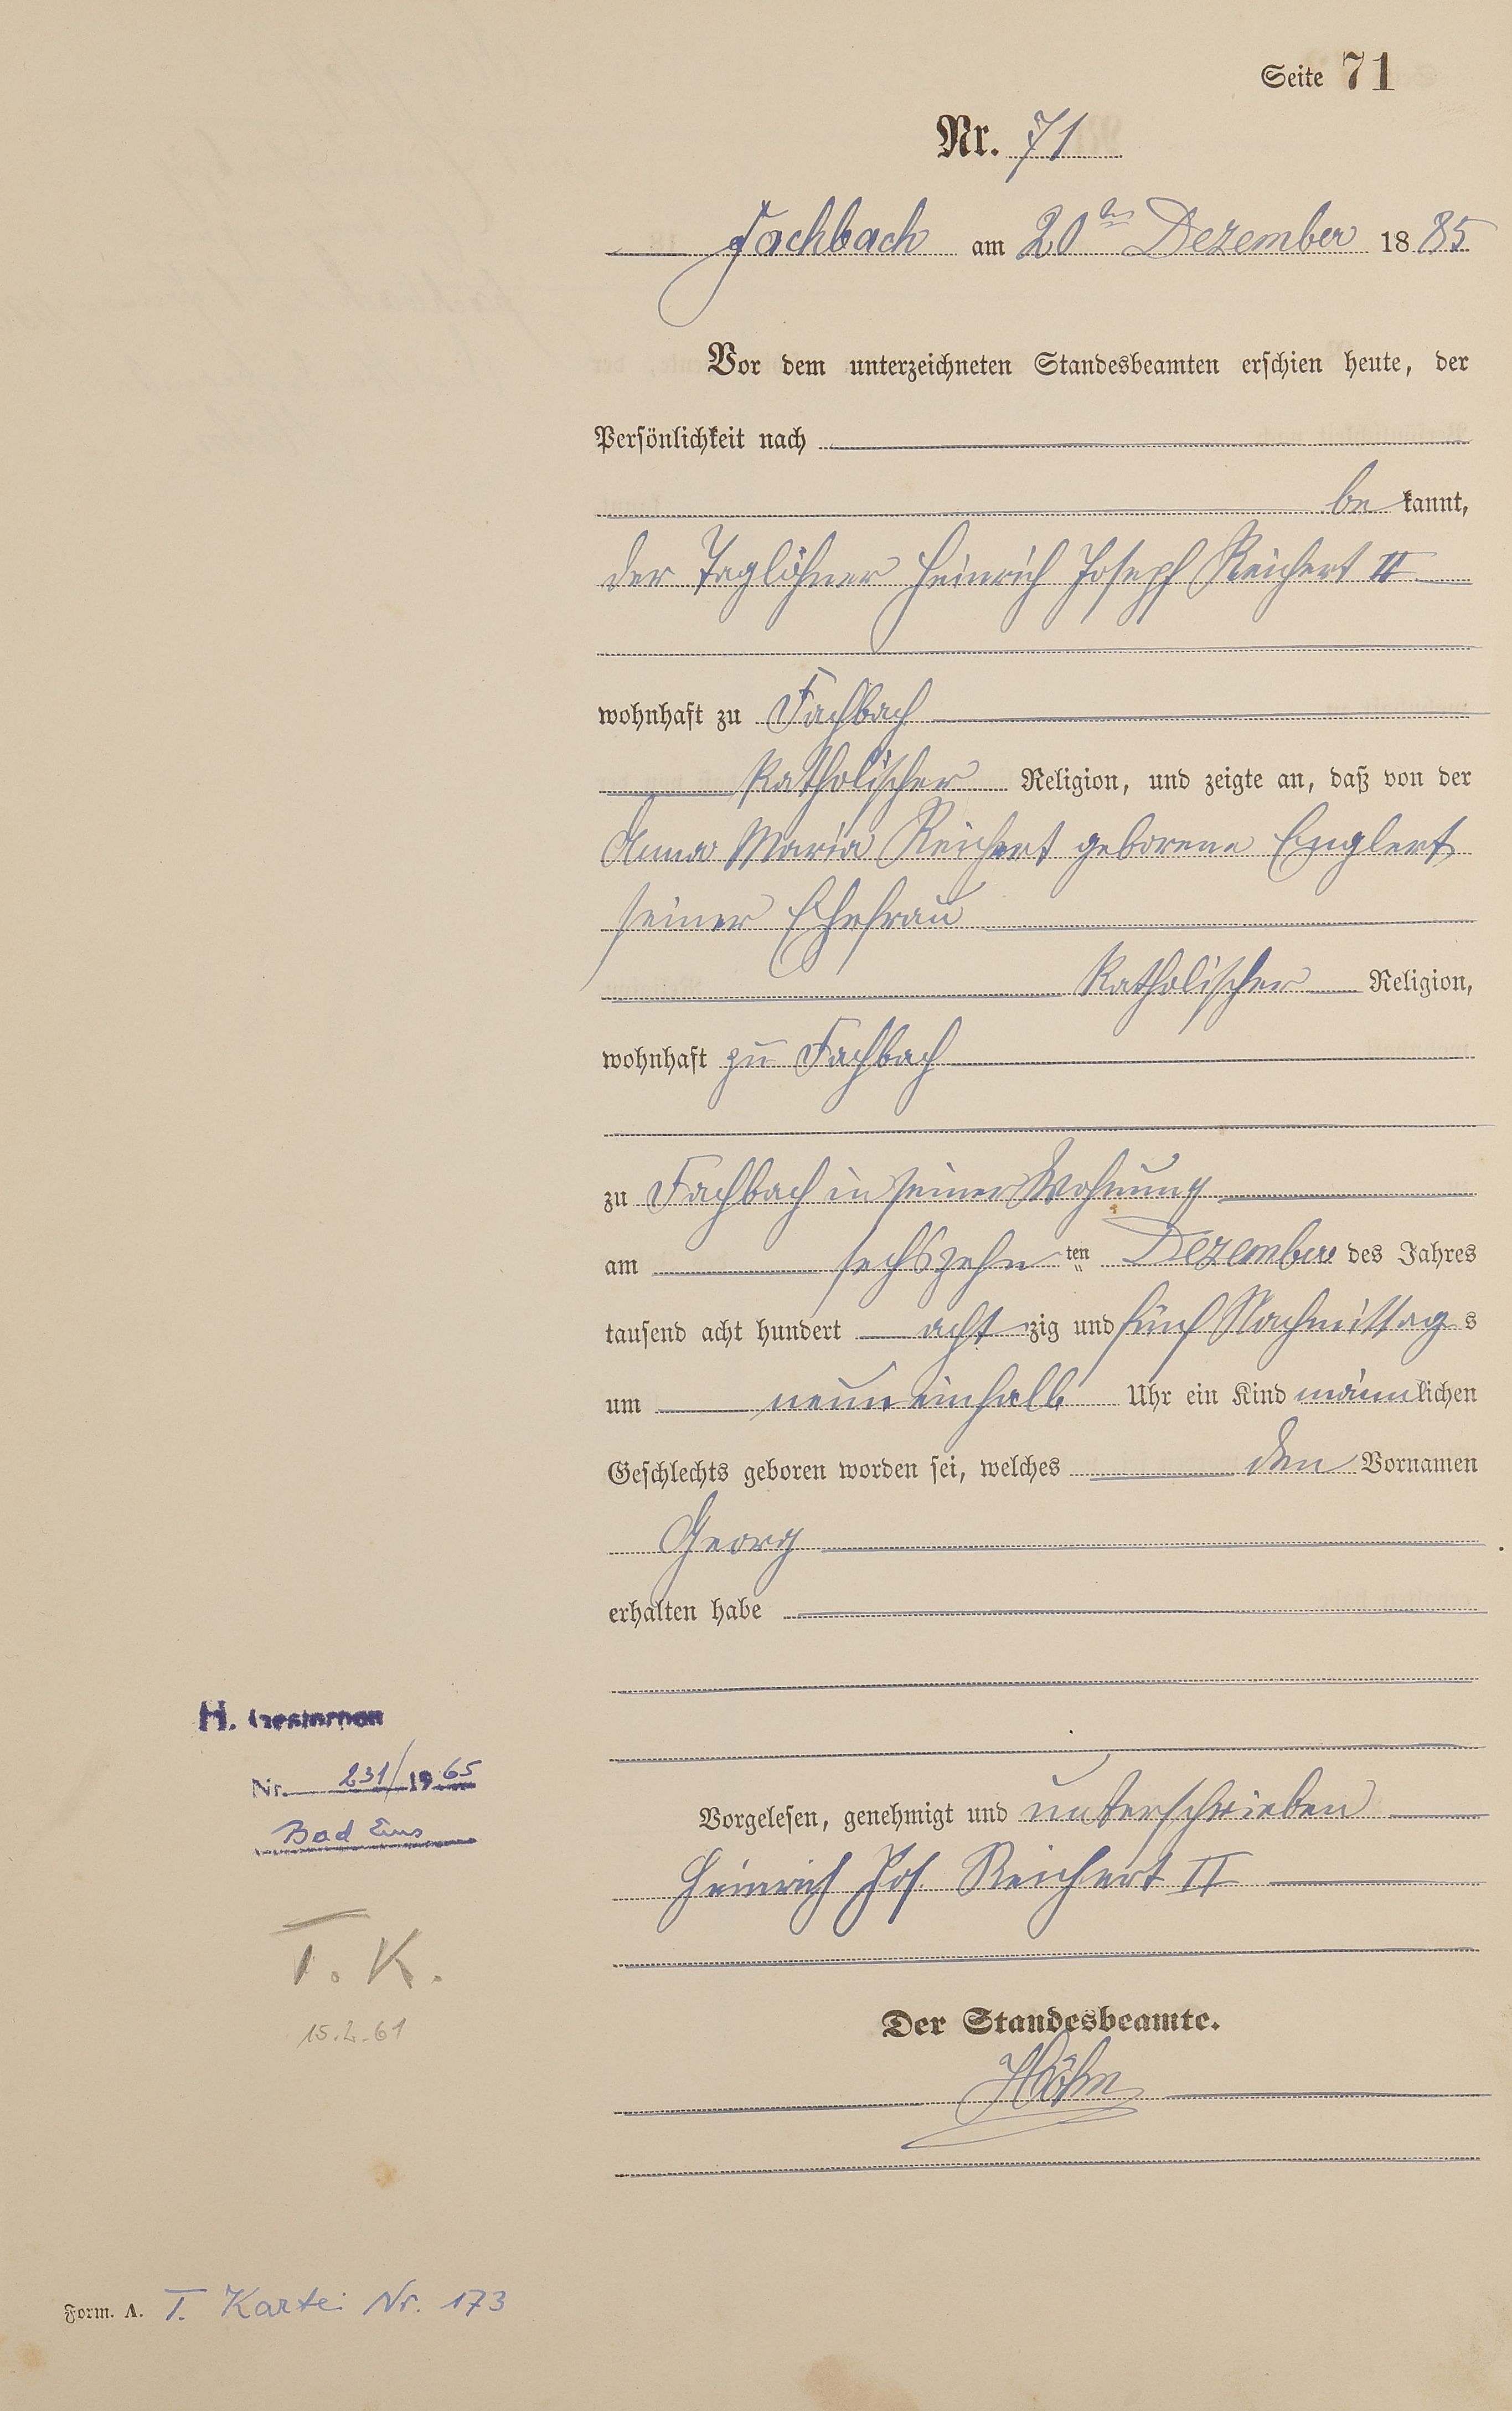 Seite 71
Nr. 71
Fachbach am 20ten Dezember 1885
Vor dem unterzeichneten Standesbeamten erschien heute, der
Persönlichkeit nach
be kannt,
der Taglöhner Heinrich Joseph Reichert II
wohnhaft zu Fachbach
Katholischer Religion, und zeigte an, daß von der
Anna Maria Reichert geborene Englert
seiner Ehefrau
Katholischer Religion,
wohnhaft zu Fachbach
zu Fachbach in seiner Wohnung
am sechszehn ten Dezember des Jahres
tausend acht hundert acht zig und fünf Nachmittag s
um neun einhalb Uhr ein Kind männlichen
Geschlechts geboren worden sei, welches den Vornamen
Georg
erhalten habe
H. Gestorben
Nr. 231/1965
Bad Ems
Vorgelesen, genehmigt und unterschrieben
Heinrich Jos. Reichert II
T. K.
15.2.61
Der Standesbeamte.
Höhn
Form. A. T. Kartei Nr. 173